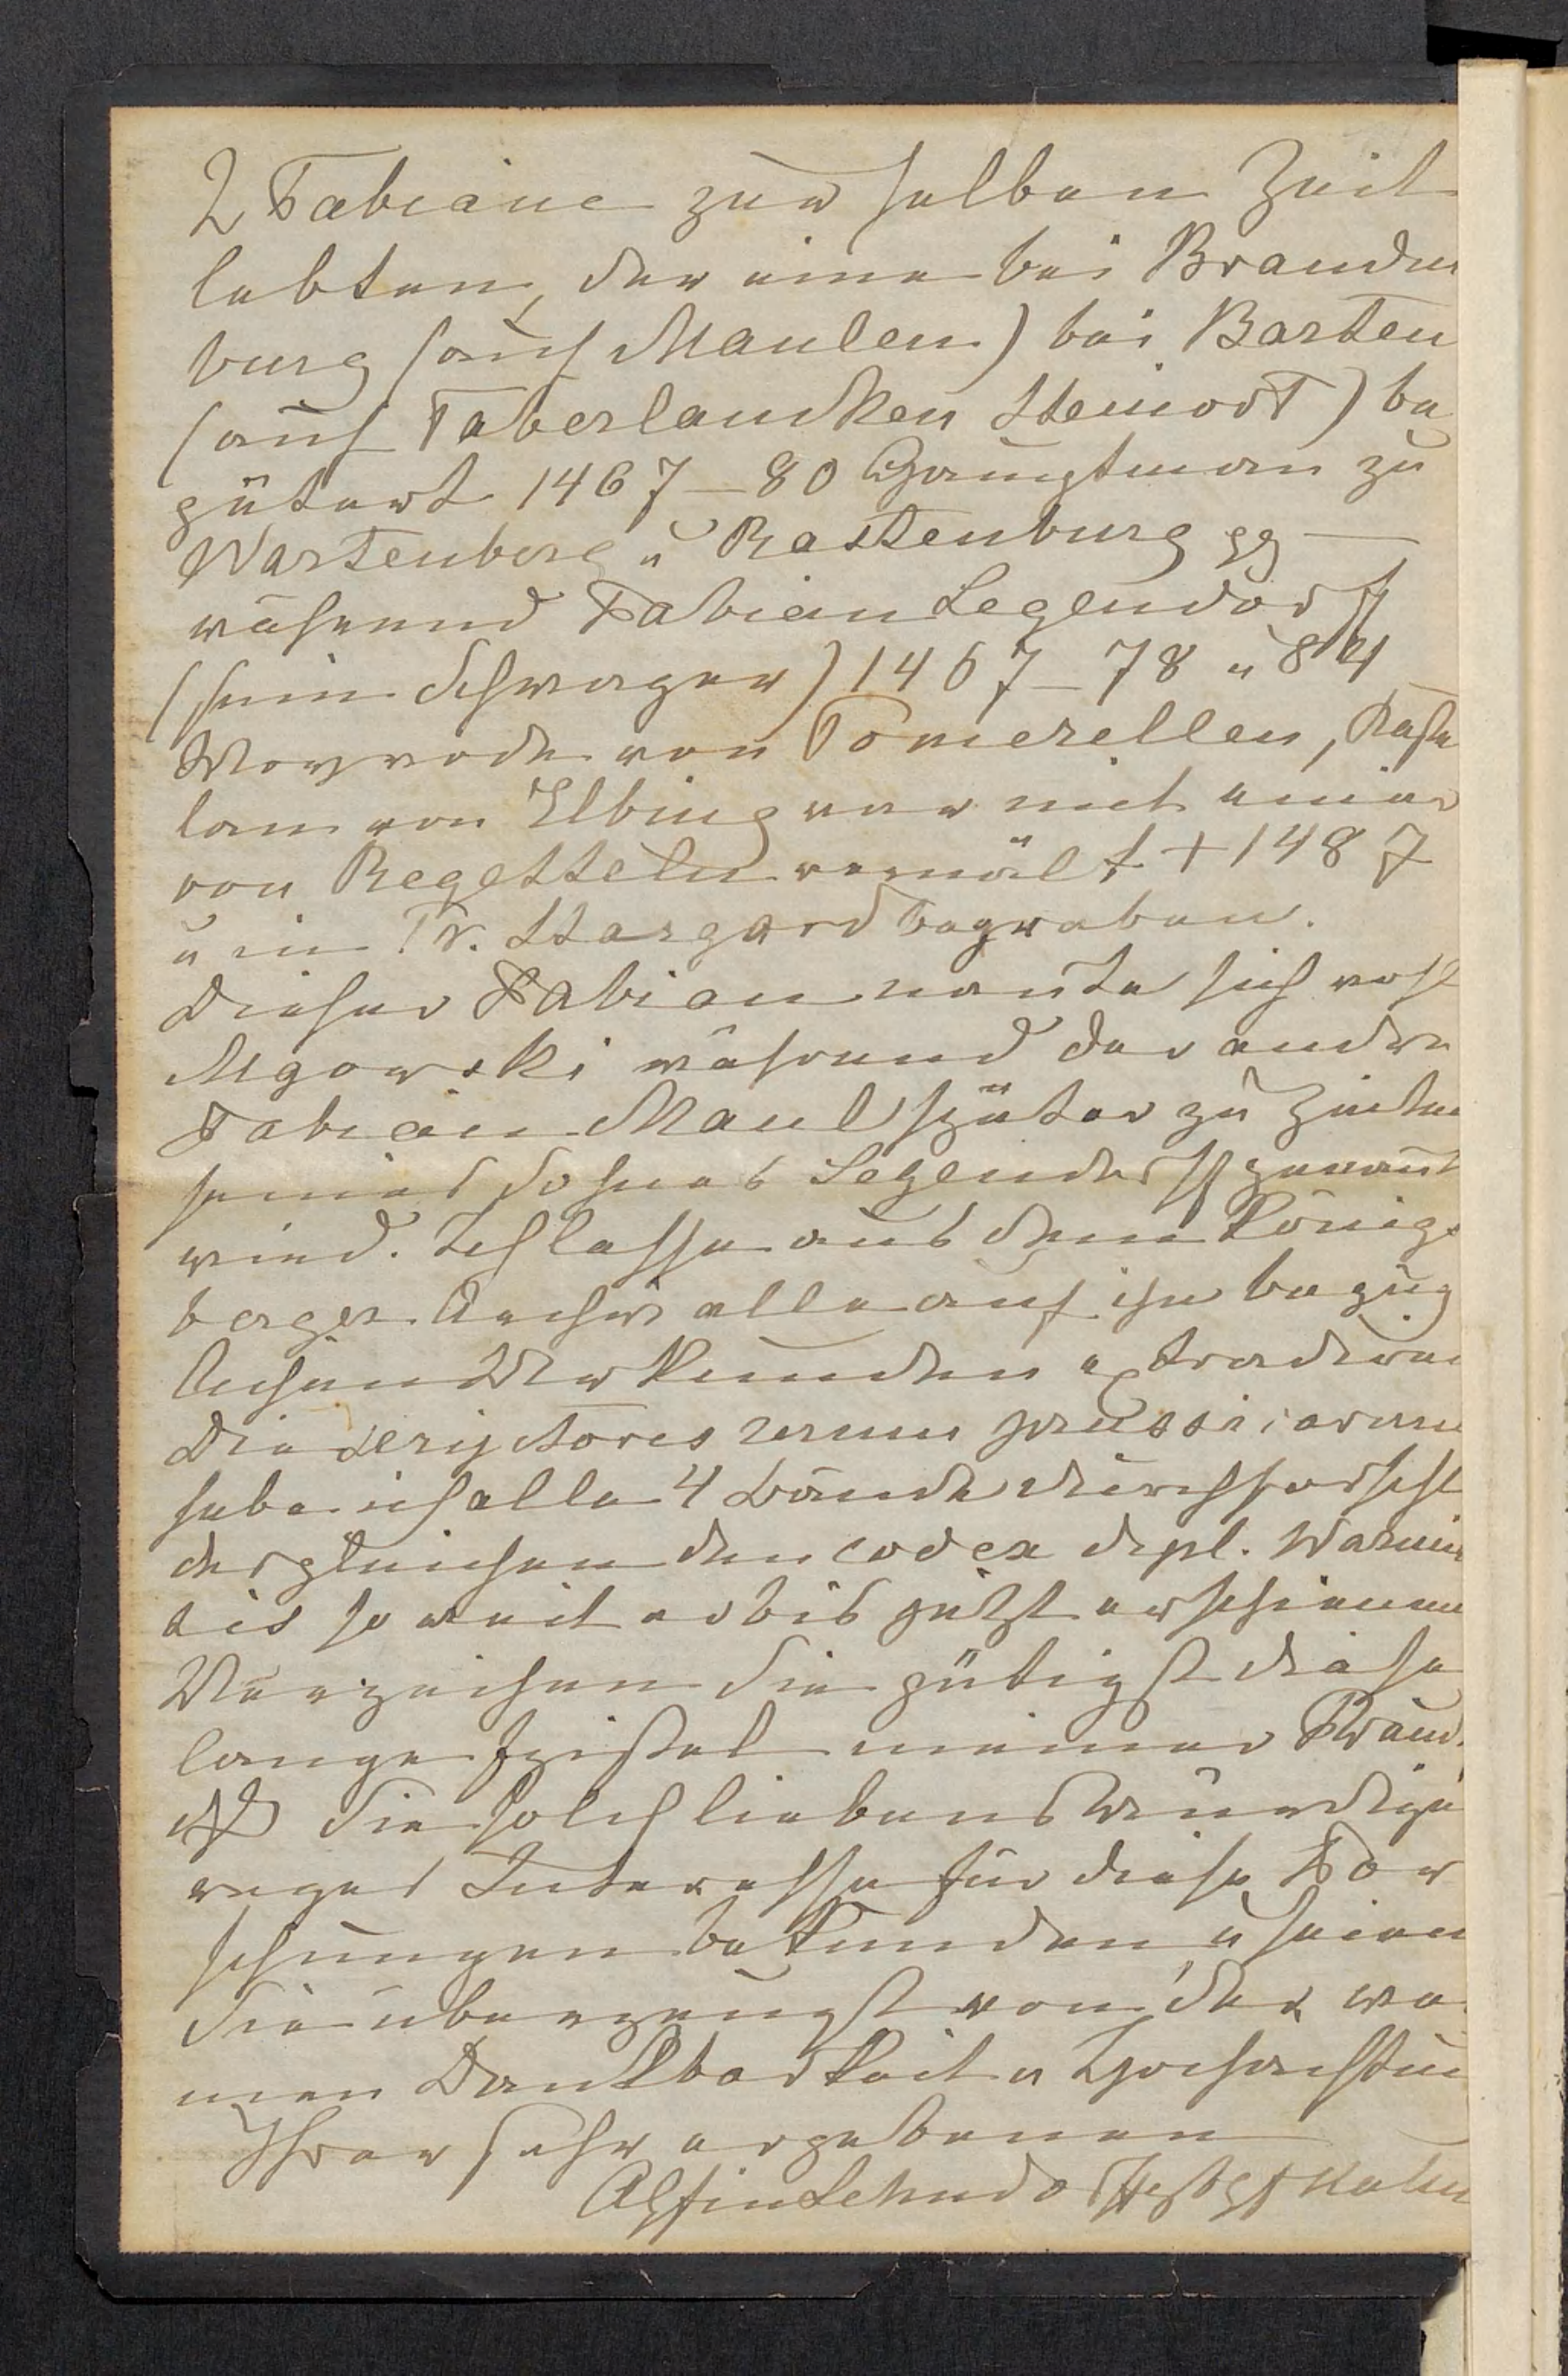 2 Fabiane zur selben Zeit
lebten, der eine bei Branden
burg (auf Maulen) bei Barten
(auf Taberlaucken Steinort) be
gütert 1467–80 Hauptman zu
Wartenberg u Rastenburg pp —
während Fabian Legendorff
(sein Schwager) 1467–78 u 84
Woywode von Pomerellen, Kaste
lan von Elbing war mit einer
von Regetteln vermält + 1487
u in Pr. Stargard begraben.
Dieser Fabian nante sich wohl
Mgowski während der andre
Fabian Maul später zu Zeiten
seines Sohnes Legendorff genant
wird. Ich lasse aus dem Königs
berger Archiv alle auf ihn bezüg
lichen Urkunden extradiren
Die scriptores rerum prussicarum
habe ich alle 4 Bände durchforscht
desgleichen den codex dipl. Warmien
sis so weit er bis jetzt erschienen
Verzeihen Sie gütigst diese
lange Epistel meiner Freude
daß Sie solch liebenswürdiges
reges Interesse für diese For
schungen bekunden u seien
Sie überzeugt von der war
men Dankbarkeit u Hochachtung
Ihrer sehr ergebenen
Gfin Lehndorff